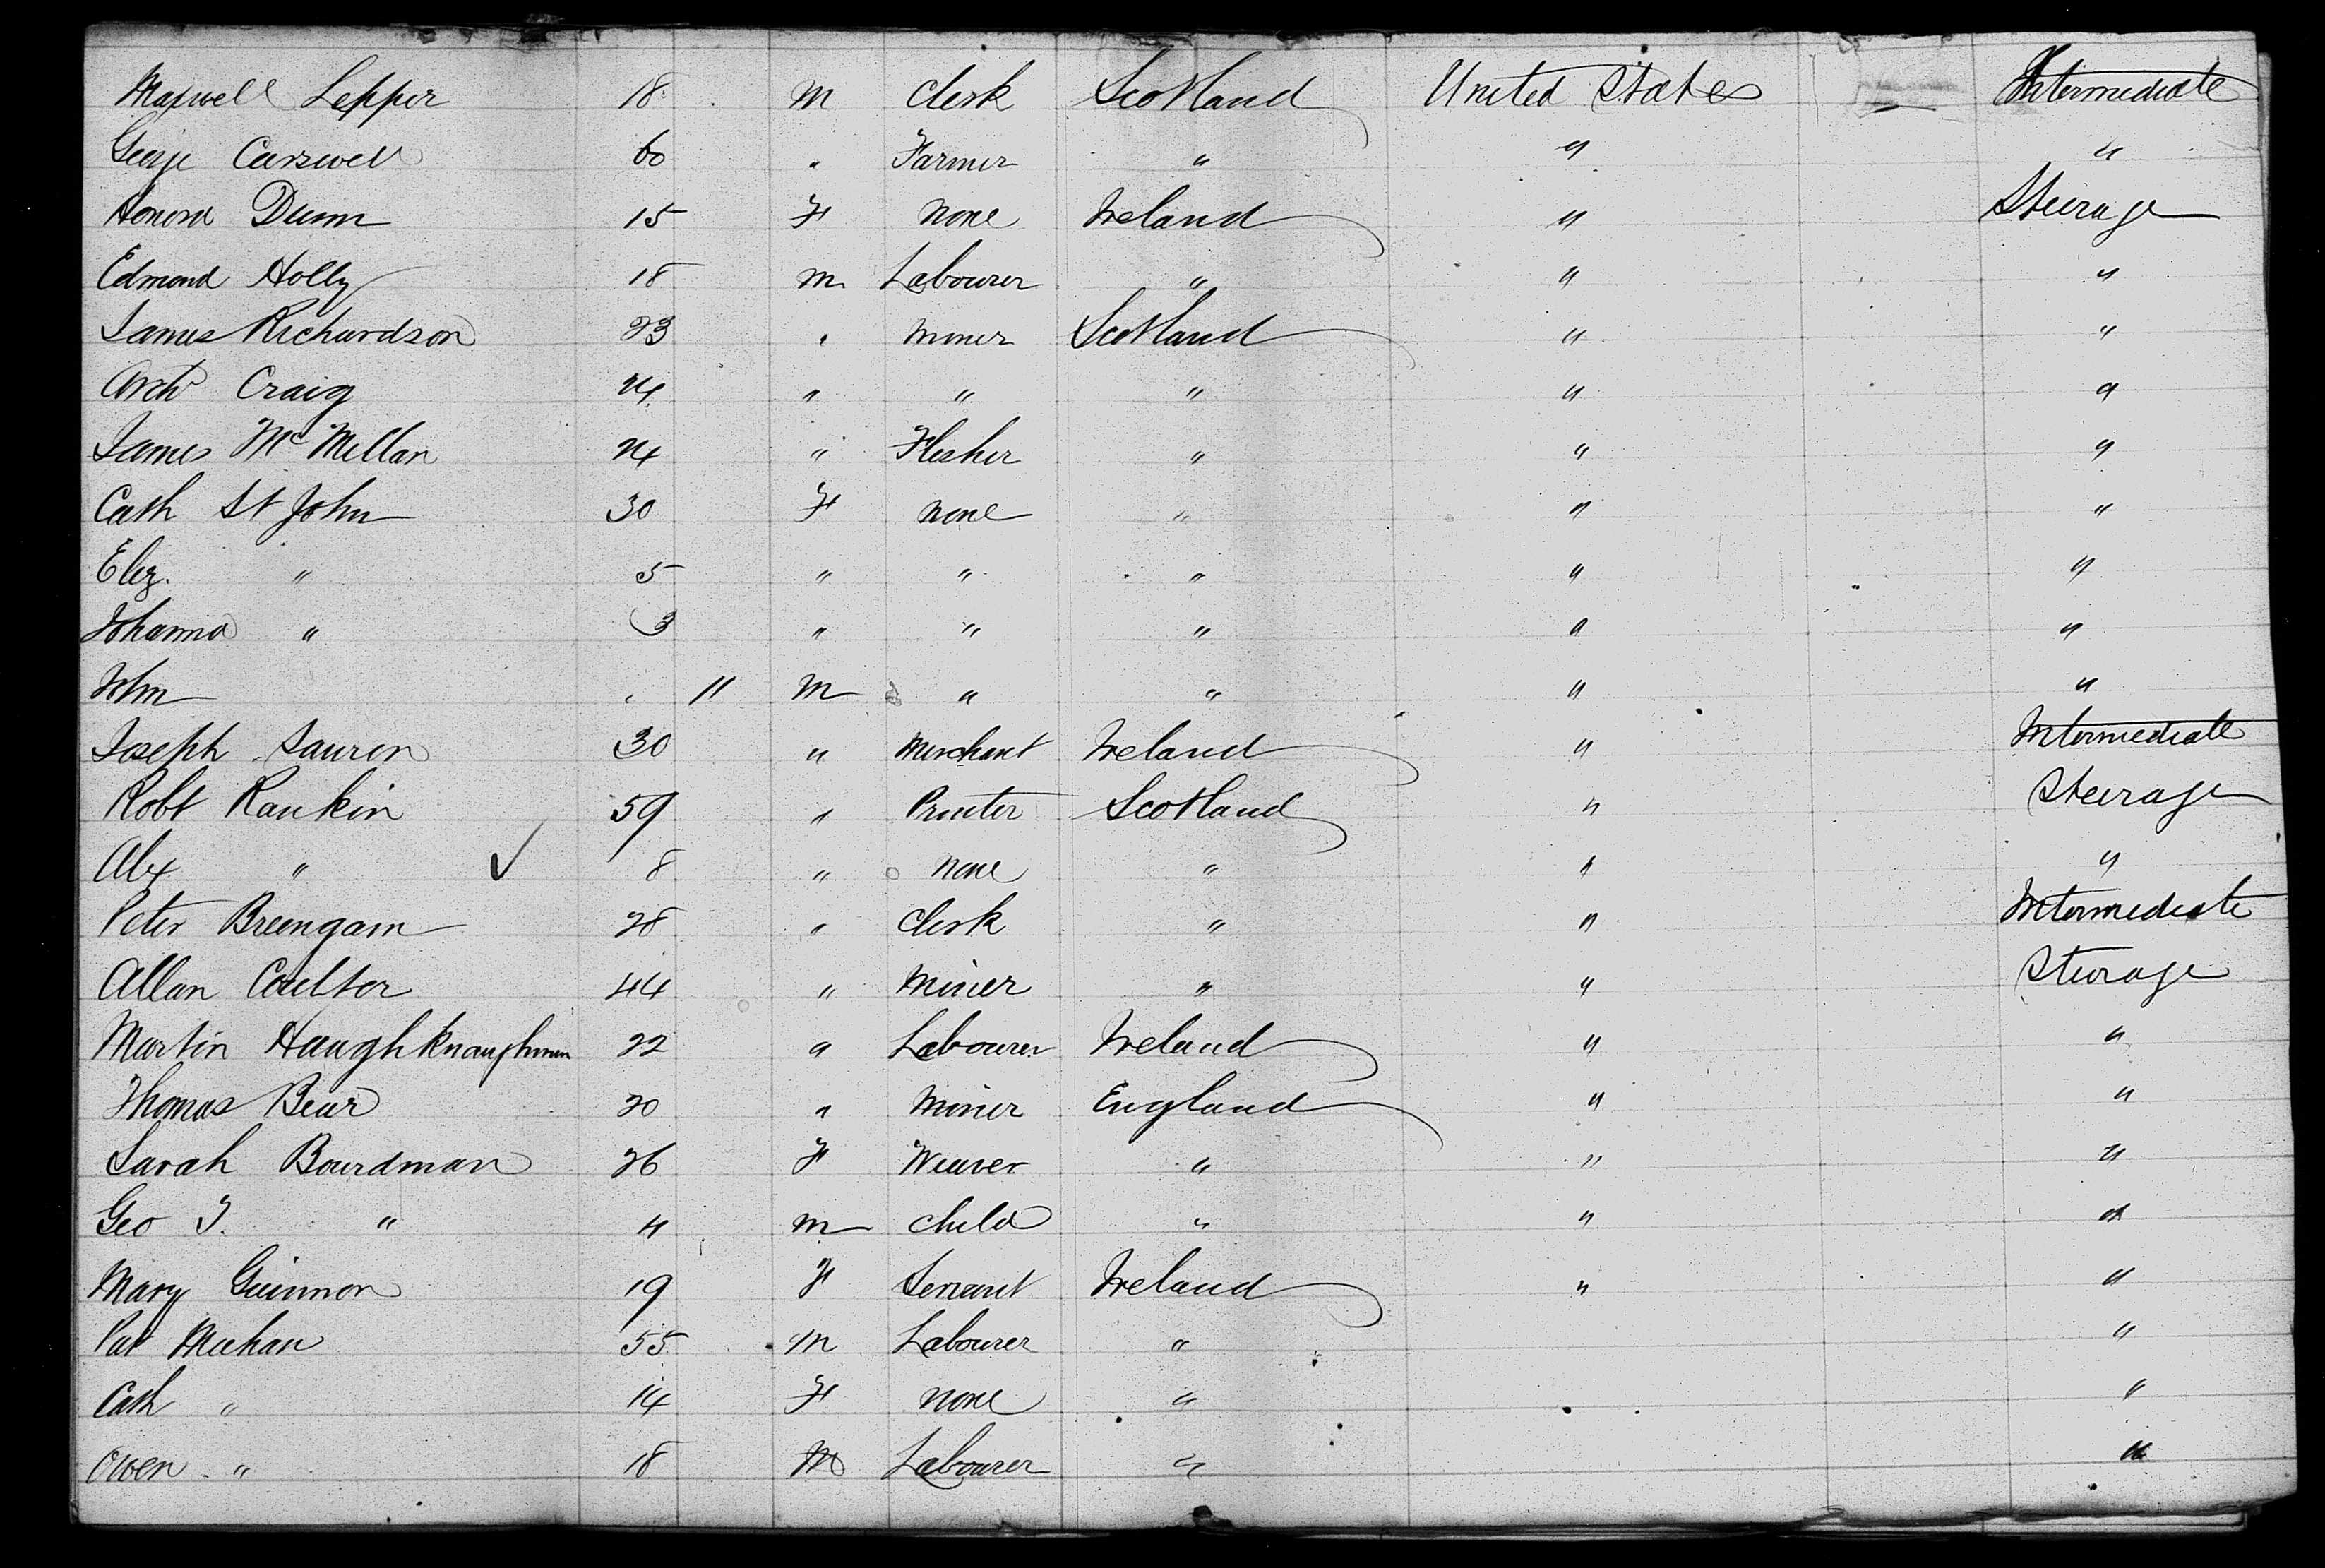 Maxwell Lepper 18 M Clerk Scotland United States — Intermediate
George Carswell 60 " Farmer " " "
Honora Dunn 15 F None Ireland " Steerage
Edmond Holly 18 M Labourer " " "
James Richardson 23 " Miner Scotland " "
Archd Craig 24 " " " " "
James McMillan 24 " Flesher " " "
Cath St John 30 F None " " "
Eliz. " 5 " " " " "
Johanna " 3 " " " " "
John " 11 M " " " "
Joseph 30 " Merchant Ireland " Intermediate
Robt Rankin 59 " Printer Scotland " Steerage
Alex " ✓ 8 " None " " "
Peter Breengam 28 " Clerk " " Intermediate
Allan Coulter 44 " Miner " " Steerage
Martin 22 " Labourer Ireland " "
Thomas Bear 20 " Miner England " "
Sarah Bourdman 26 F Weaver " " "
Geo T. " 4 M Child " " "
Mary Guinnon 19 F Servant Ireland " "
Pat Meehan 55 M Labourer " "
Cath " 14 F None " "
Owen " 18 M Labourer " "